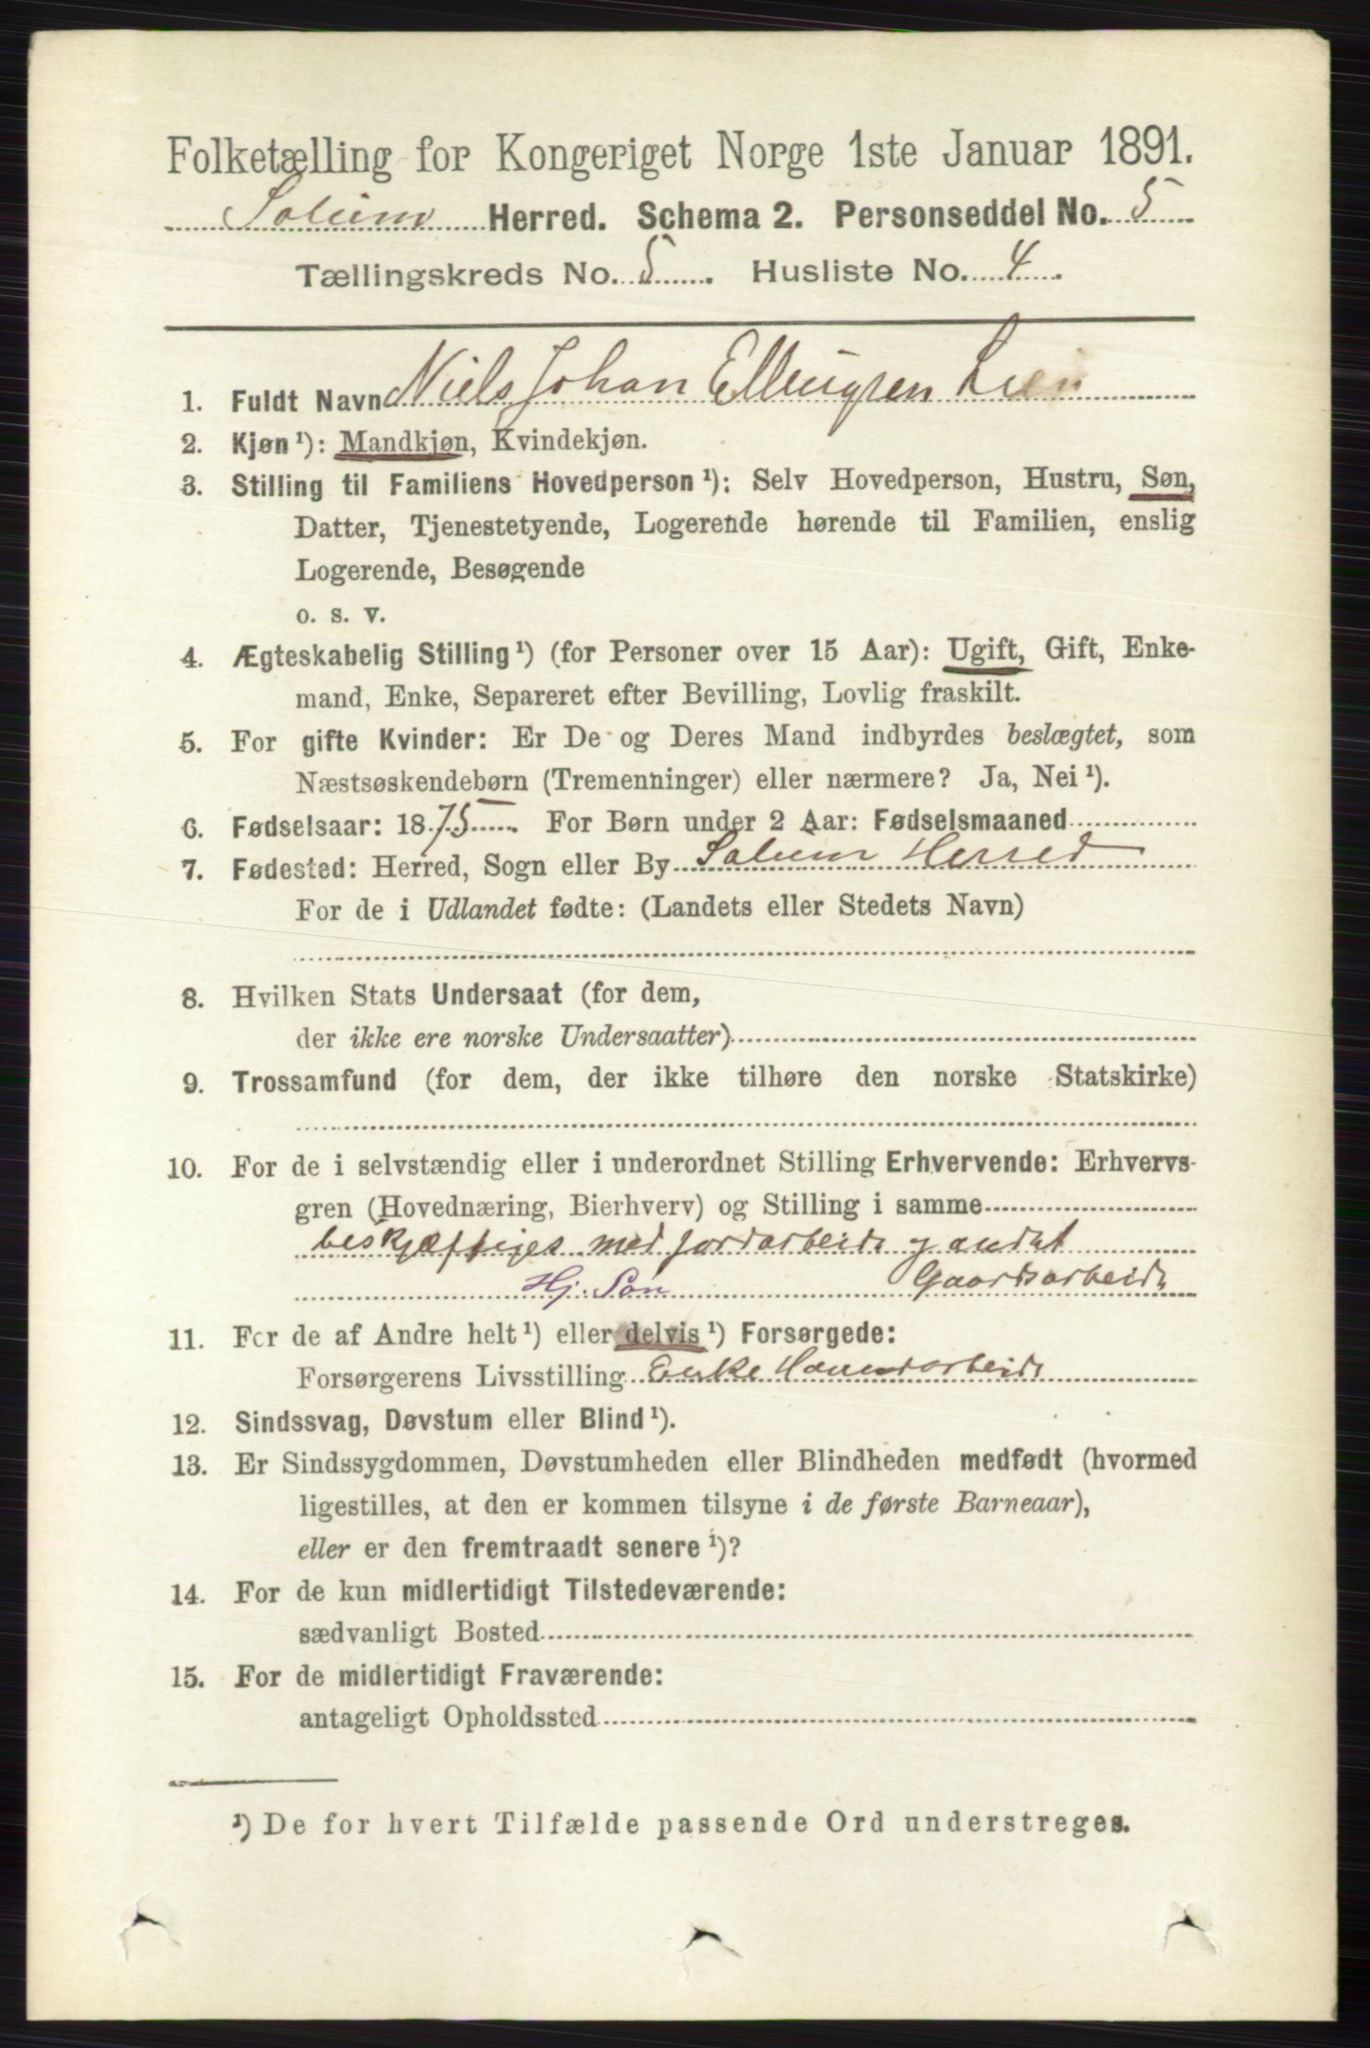 Folketælling for Kongeriget Norge 1ste Januar 1891.
Solum Herred. Schema 2. Personseddel No. 5
Tællingskreds No. 5. Husliste No. 4.
1. Fuldt Navn Niels Johan Ellingsen Lien
2. Kjøn¹): Mandkjøn, Kvindekjøn.
3. Stilling til Familiens Hovedperson¹): Selv Hovedperson, Hustru, Søn,
Datter, Tjenestetyende, Logerende hørende til Familien, enslig
Logerende, Besøgende
o. s. v.
4. Ægteskabelig Stilling¹) (for Personer over 15 Aar): Ugift, Gift, Enke-
mand, Enke, Separeret efter Bevilling, Lovlig fraskilt.
5. For gifte Kvinder: Er De og Deres Mand indbyrdes beslægtet, som
Næstsøskendebørn (Tremenninger) eller nærmere? Ja, Nei¹).
6. Fødselsaar: 1875. For Børn under 2 Aar: Fødselsmaaned
7. Fødested: Herred, Sogn eller By Solum Herred
For de i Udlandet fødte: (Landets eller Stedets Navn)
8. Hvilken Stats Undersaat (for dem,
der ikke ere norske Undersaatter)
9. Trossamfund (for dem, der ikke tilhøre den norske Statskirke)
10. For de i selvstændig eller i underordnet Stilling Erhvervende: Erhvervs-
gren (Hovednæring, Bierhverv) og Stilling i samme
beskjæftiges med jordarbeide og andet
Hj. Søn Gaardsarbeide
11. For de af Andre helt¹) eller delvis¹) Forsørgede:
Forsørgerens Livsstilling Enke Haandarbeide
12. Sindssvag, Døvstum eller Blind¹).
13. Er Sindssygdommen, Døvstumheden eller Blindheden medfødt (hvormed
ligestilles, at den er kommen tilsyne i de første Barneaar),
eller er den fremtraadt senere¹)?
14. For de kun midlertidigt Tilstedeværende:
sædvanligt Bosted
15. For de midlertidigt Fraværende:
antageligt Opholdssted
¹) De for hvert Tilfælde passende Ord understreges.